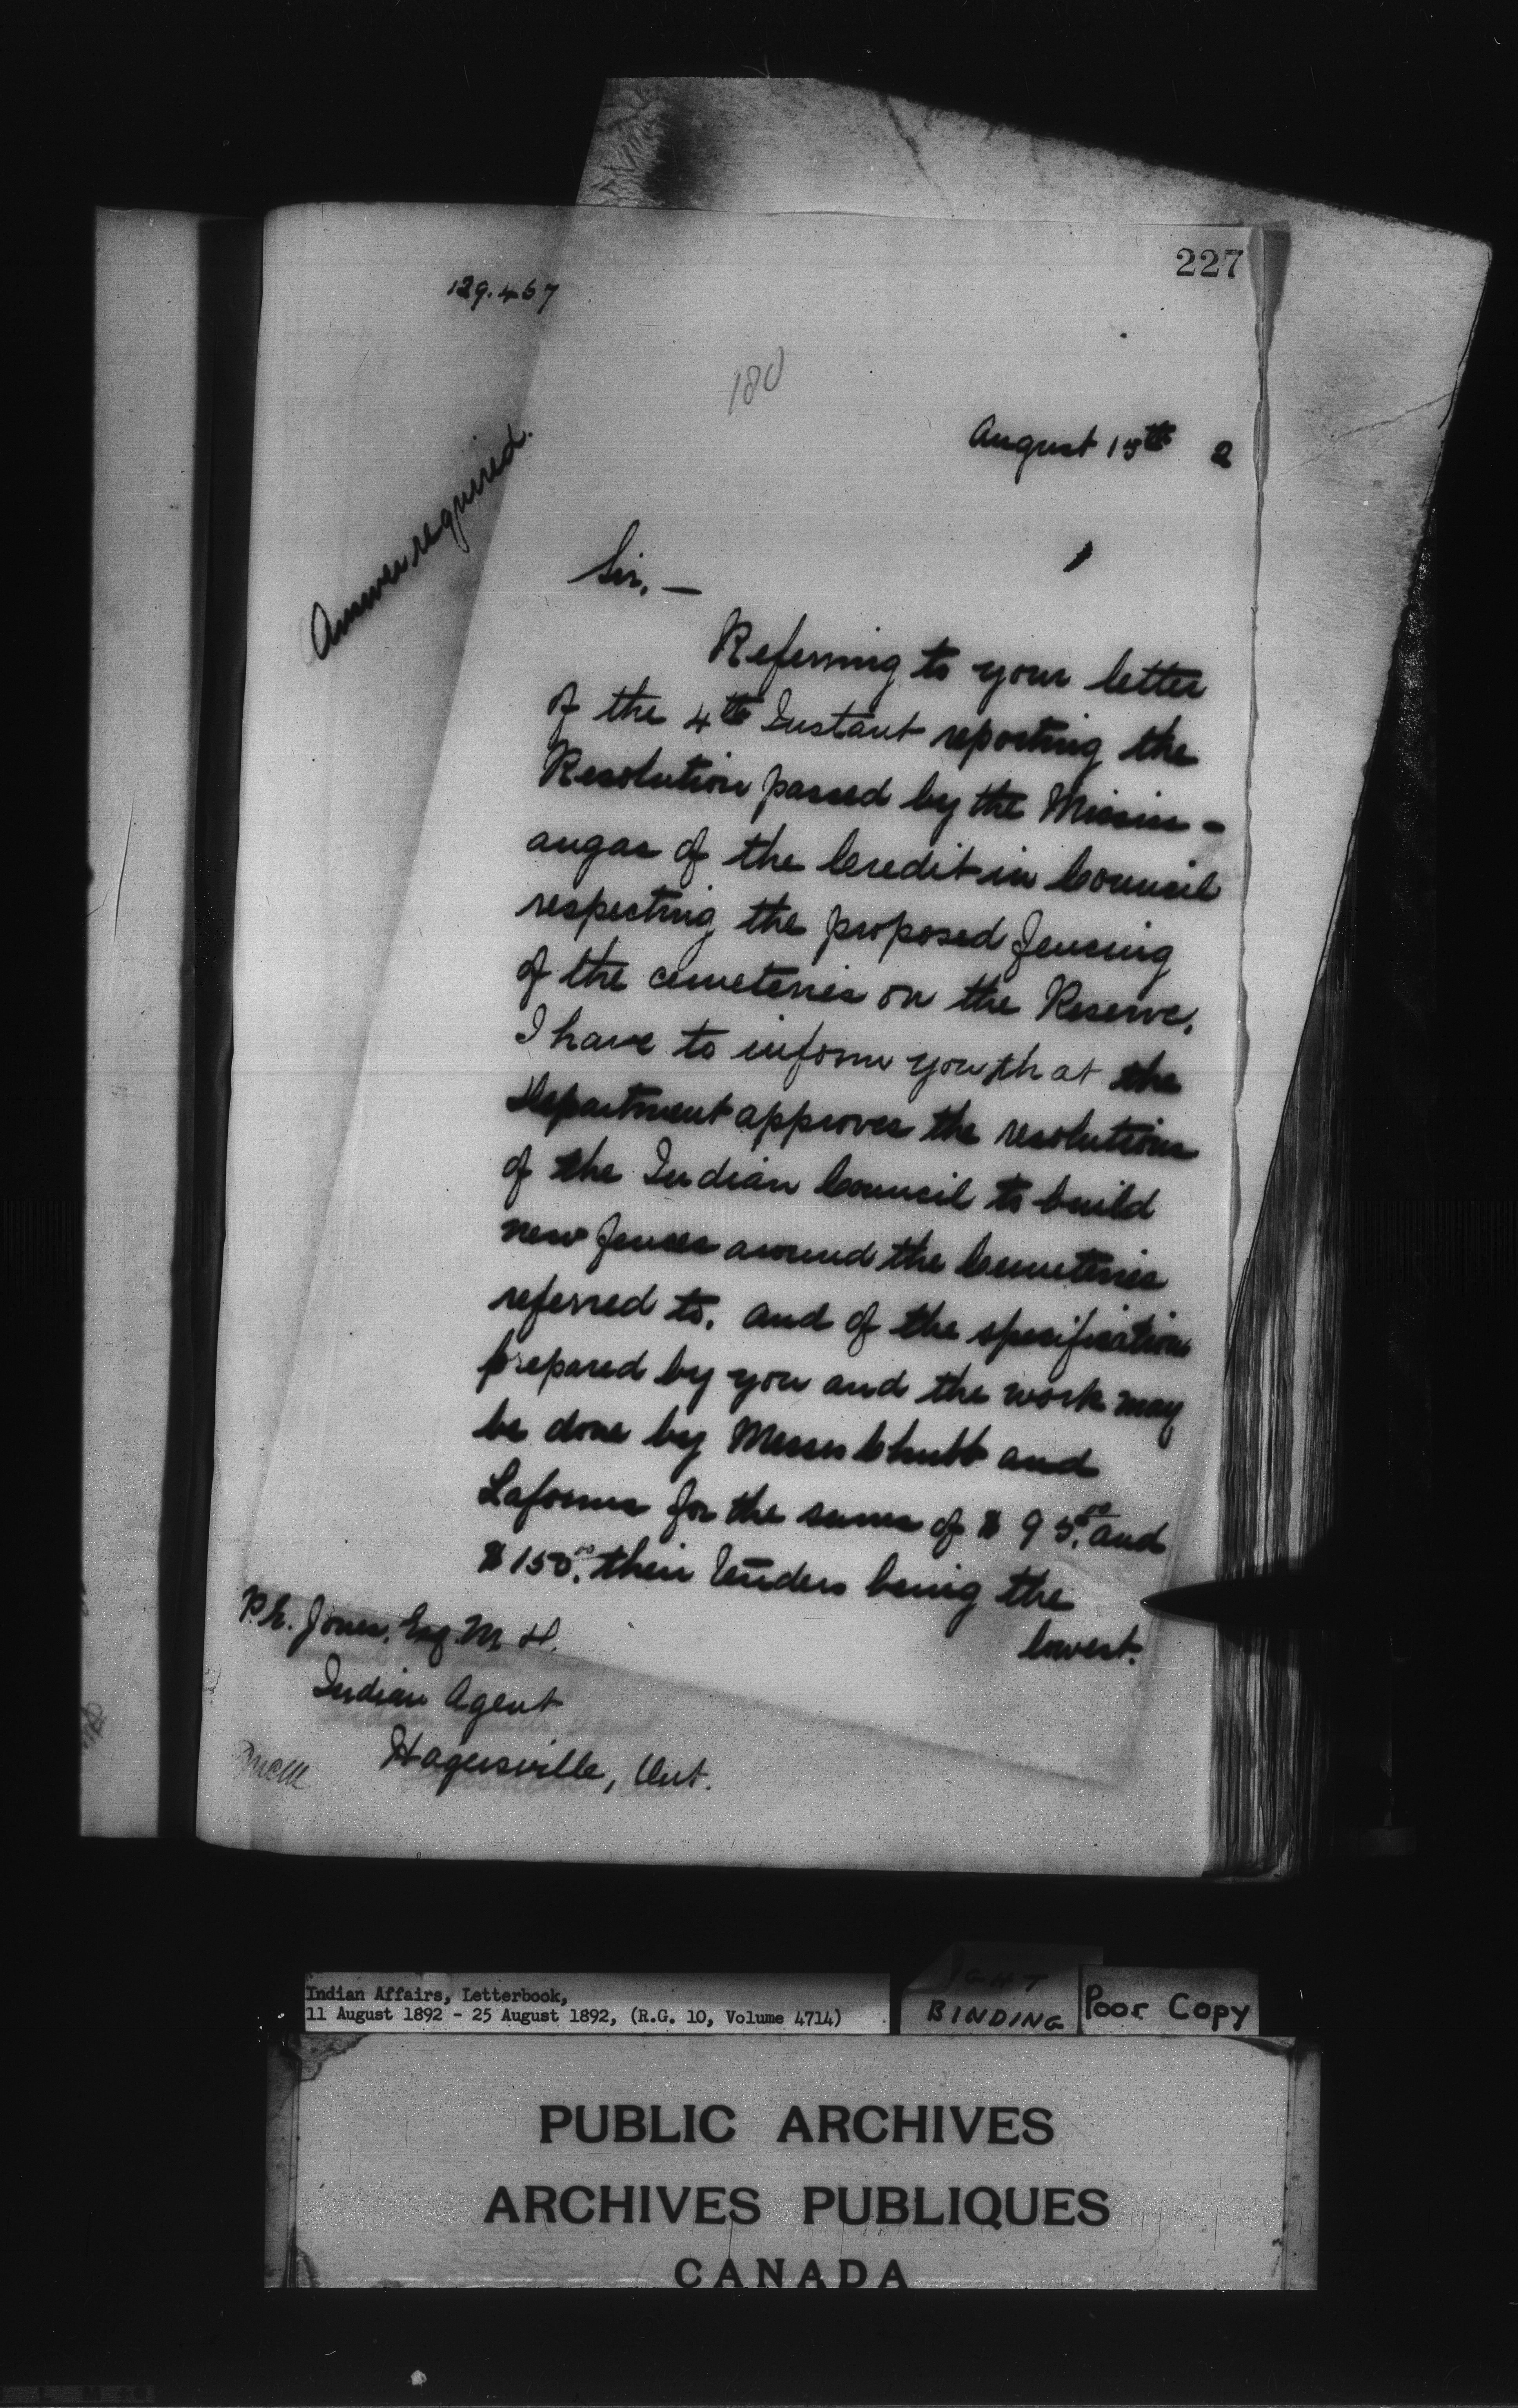 227
129.467
180
August 15th 2
Answer required.
Sir, —
Referring to your letter
of the 4th Instant reporting the
Resolution passed by the Missis-
augas of the Credit in Council
respecting the proposed fencing
of the cemeteries on the Reserve,
I have to inform you that the
Department approves the resolution
of the Indian Council to build
new fences around the Cemeteries
referred to, and of the specification
prepared by you and the work may
be done by Messrs Chubb and
Laforme for the sums of $95.00 and
$150.00, their tenders being the
lowest.
P.E. Jones, Esq. M D.
Indian Agent
Hagersville, Ont.
Indian Affairs, Letterbook,
11 August 1892 - 25 August 1892, (R.G. 10, Volume 4714)
BINDING
Poor Copy
PUBLIC ARCHIVES
ARCHIVES PUBLIQUES
CANADA